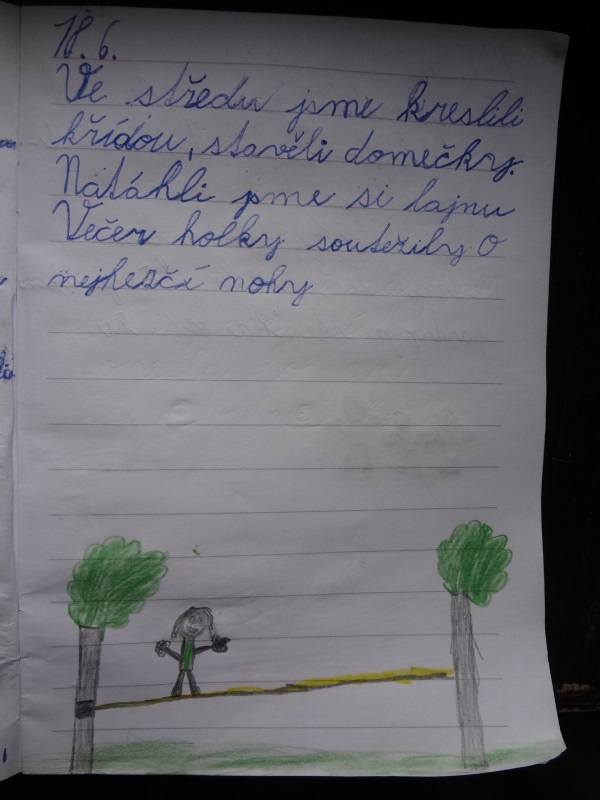 18.6.
Ve středu jsme kreslili
křídou, stavěli domečky.
Natáhli jsme si lajnu
Večer holky soutežily O
nejhezčí nohy